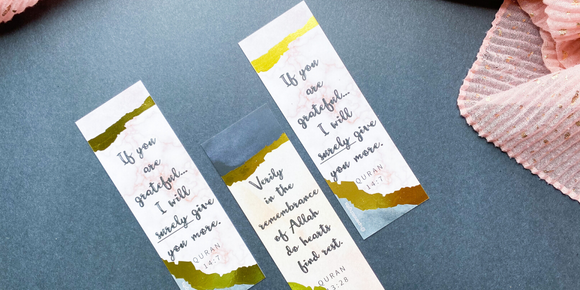 If you
are
grateful...
I will
surely give
you more.
QURAN
14:7
Verily
in the
remembrance
of Allah
do hearts
find rest.
QURAN
3:28
If you
are
grateful...
I will
surely give
you more.
QURAN
14:7